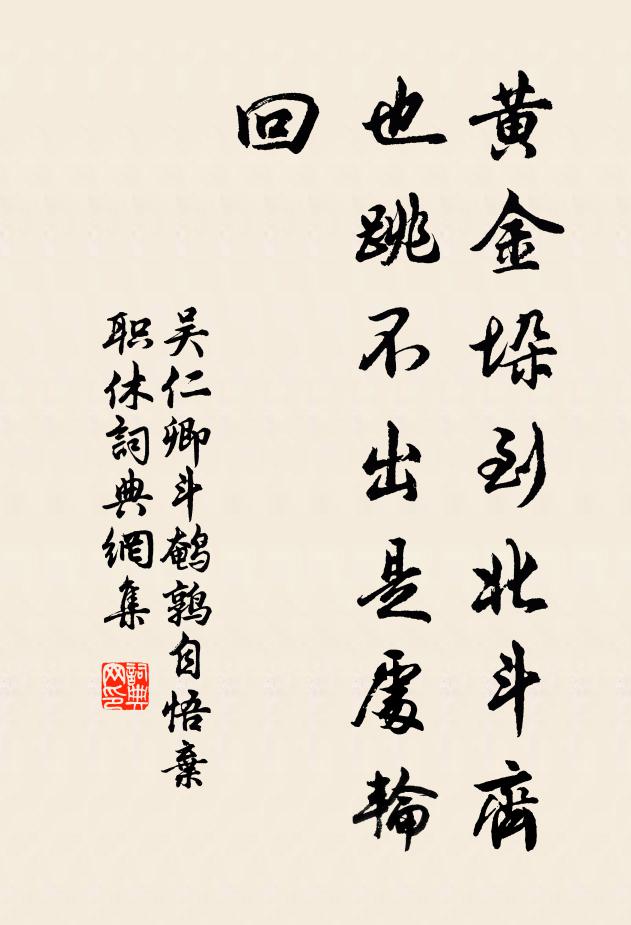 黄金垛到北斗齊
也跳不出是處輪
回
吴仁卿斗鵪鶉自悟棄
职休詞典網集
詞典
网印